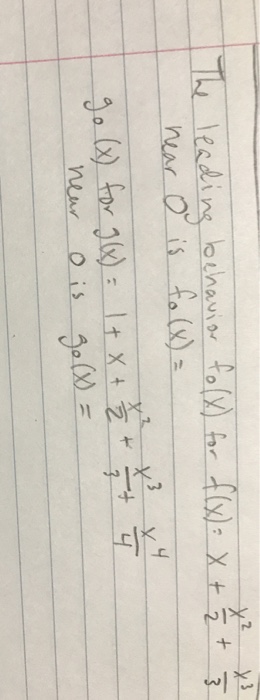 The leading behavior f₀(x) for f(x) = x + x²/2 + x³/3
near 0 is f₀(x) =
g₀(x) for g(x) = 1 + x + x²/2 + x³/3 + x⁴/4
near 0 is g₀(x) =